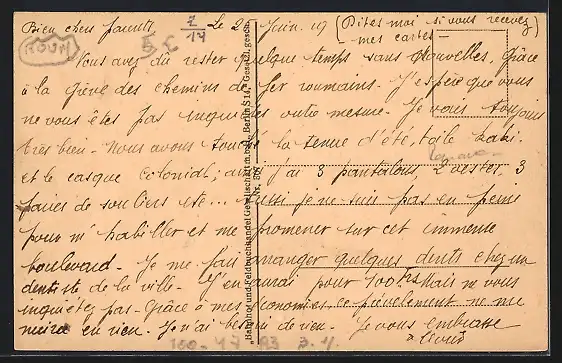 Bien chers parents Le 2 Juin 19 (Dites moi si vous recevez
mes cartes -
ROUM
7/14
Vous avez dû rester quelque temps sans nouvelles, grâce
à la grève des chemins de fer roumains. J'espère que vous
ne vous êtes pas inquiétés outre mesure. Je vais toujours
très bien - Nous avons touché la tenue d'été, toile kaki
et le casque colonial; j'ai 3 pantalons, 2 vestes, 3
paires de souliers etc... Aussi je ne suis pas en peine
pour m'habiller et me promener sur cet immense
boulevard - Je me fais arranger quelques dents chez un
dentiste de la ville - J'en aurai pour 100 frs Mais ne vous
inquiétez pas - Grâce à mes économies ce prélèvement ne me
en rien. Je n'ai besoin de rien. Je vous embrasse
Bahnhof und Feldbuchhandel Gesellschaft m.b.H. Berlin S 14. Gesetzl. gesch.